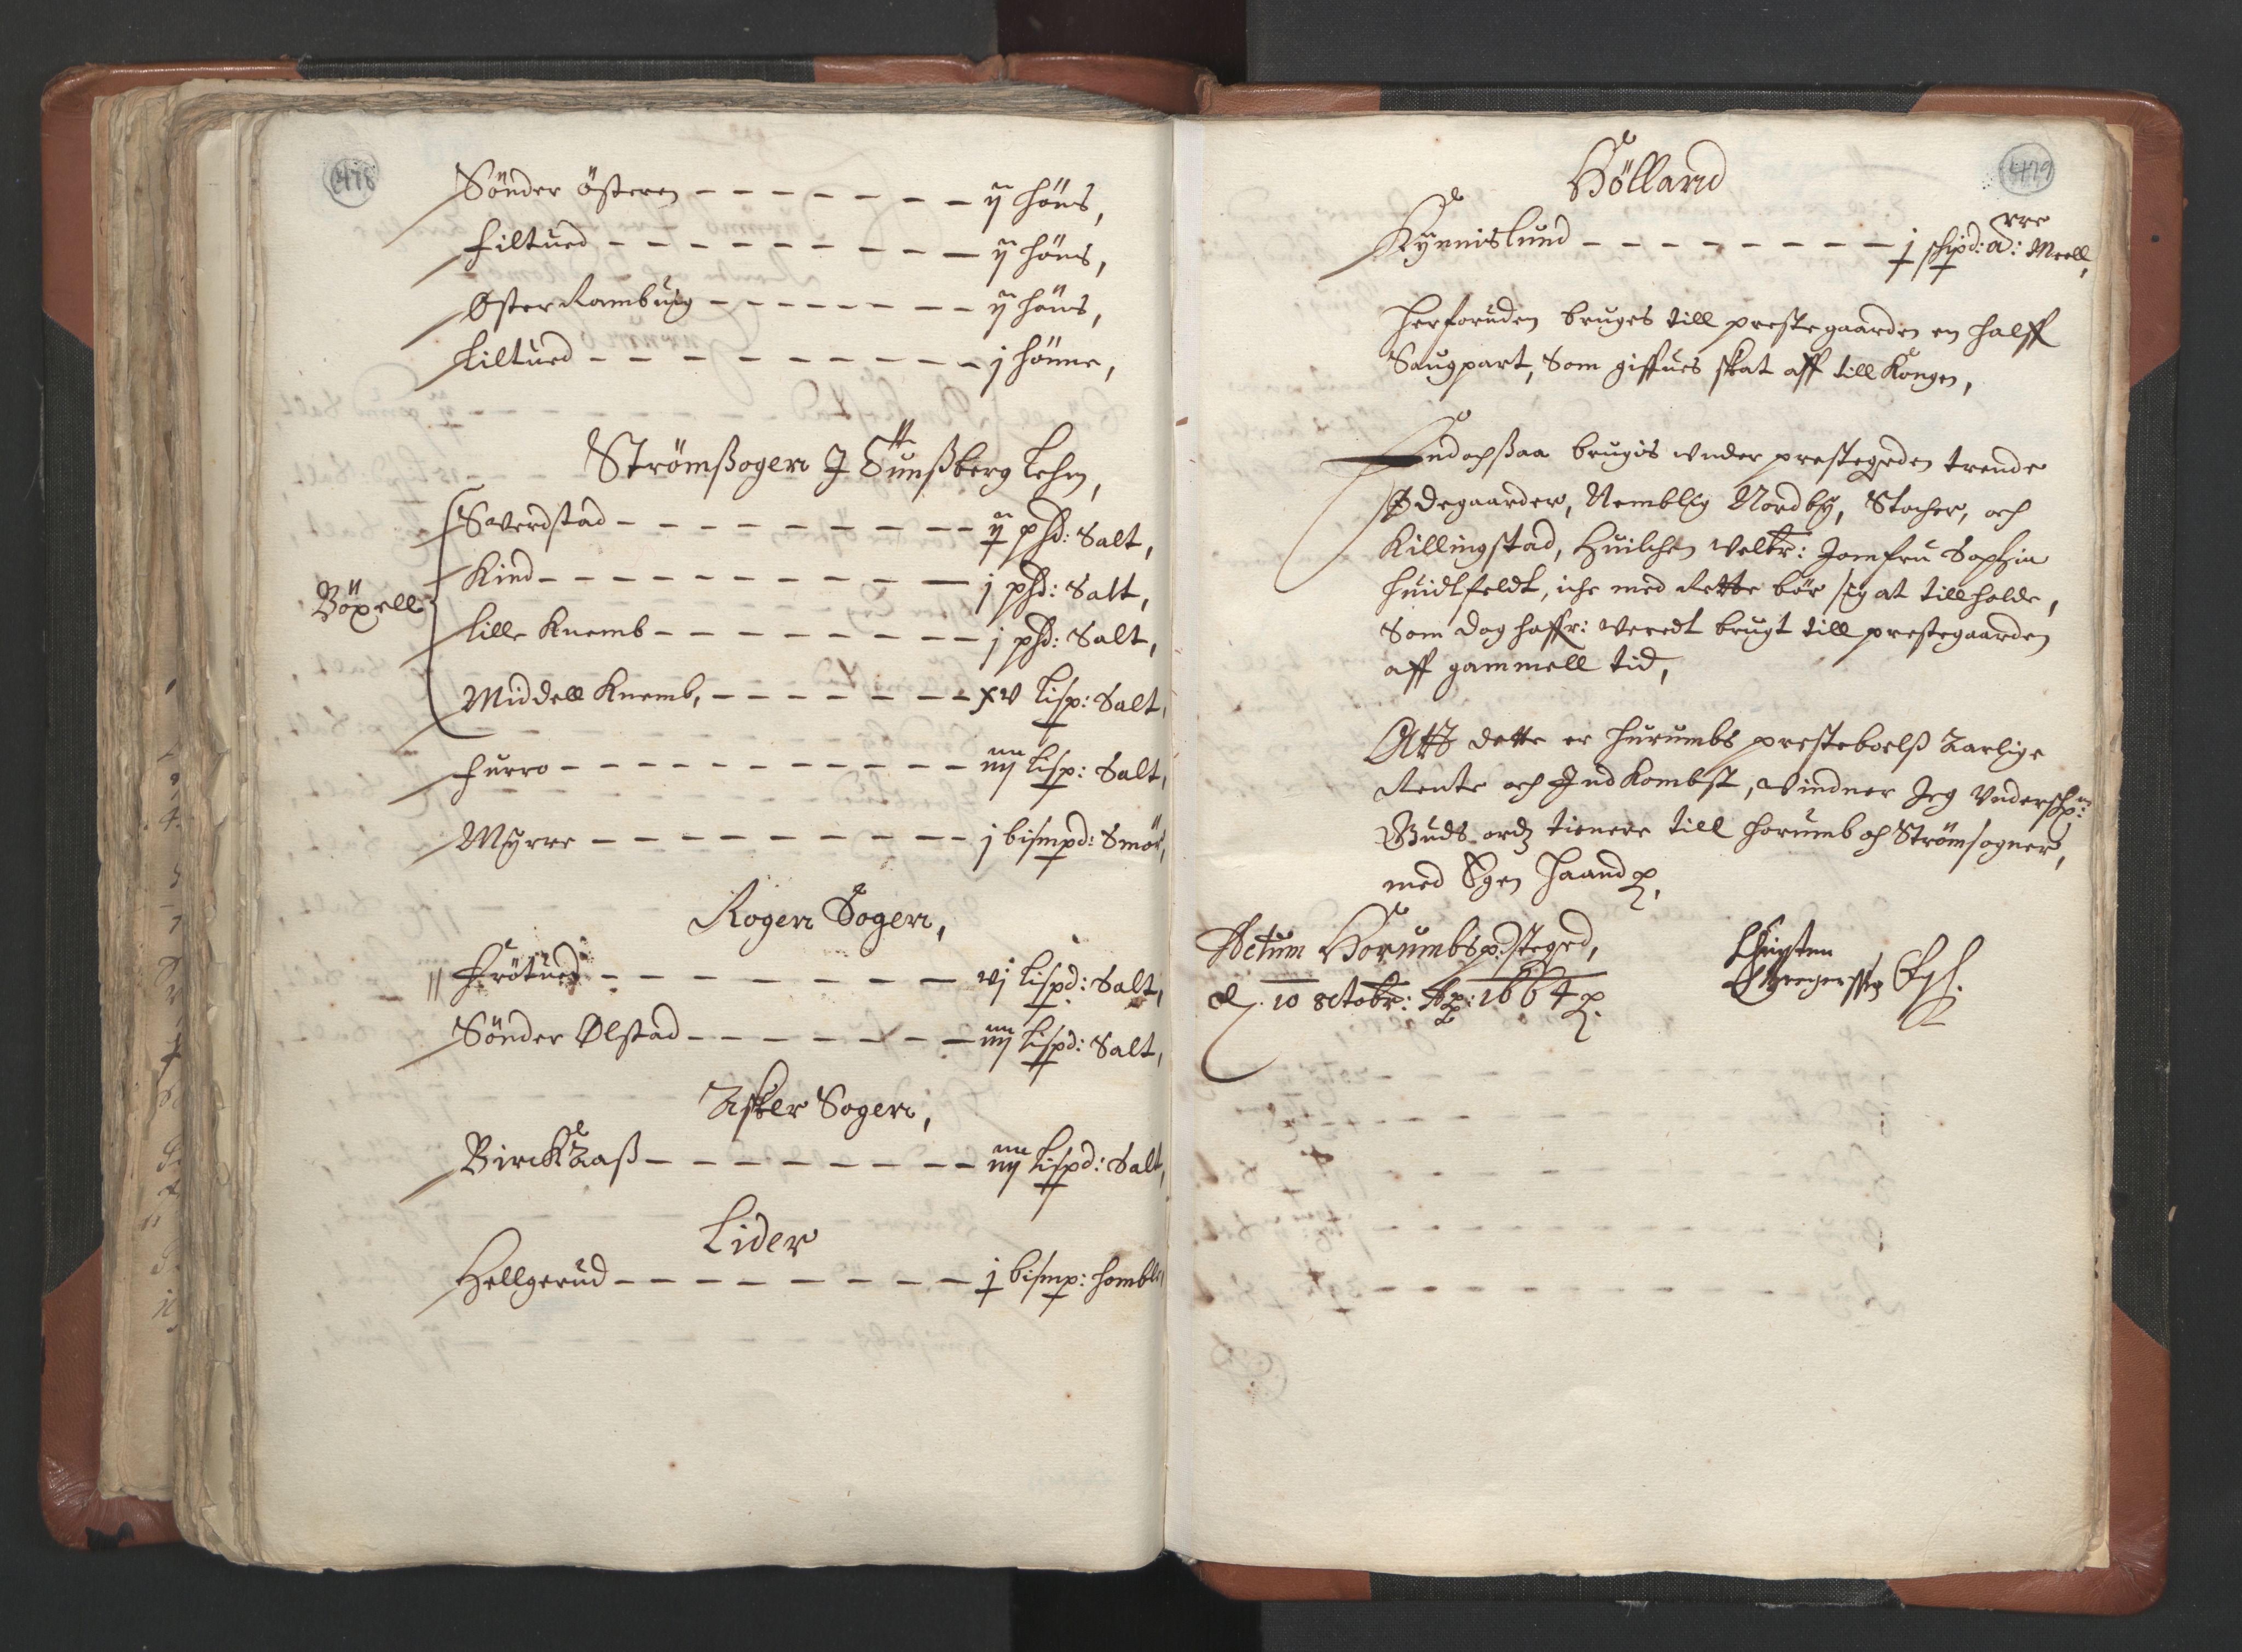 478
Sönder Österen - - - - - - - ij höns,
Filtued - - - - - - - - ij höns,
Øster Rambuig - - - - - - - ij höns,
Liltued - - - - - - - - - j hönne,
Strömßogen J Tunßberg Lehn,
Böxell
Swerdstad - - - - - - - - - ij phd: Salt,
Kind - - - - - - - - - - j phd: Salt,
Lille Knemb - - - - - - - - j phd: Salt,
Middell Knemb, - - - - - - - xv Lisp: Salt,
Furro - - - - - - - - - - - iiij Lisp: Salt,
Myrre - - - - - - - - - - j bismpd: Smör,
Rogen Sogen,
Frötued - - - - - - - - - vj Lispd: Salt,
Sönder Ølstad - - - - - - - iiij Lispd: Salt,
Asker Sogen,
Birckaaß - - - - - - - - iiij Lispd: Salt,
Lider
Hellgerud - - - - - - - - j bismp: homble,
479
Hölland
Kynnislund - - - - - - - - j schpd: a: Meell,
Herforuden bruges till prestegaarden en halff
Saugpart, Som giffues skat aff till Kongen,
Endochßaa brugis vnder prestegrden trende
Ødegaarder, Nemblig Nordby, Stocher, och
Killingstad, Huilchen Velbr: Jomfru Sophia
Huidtfeldt, iche med Rette bör sig at tillholde,
Som dog haffr: Veredt brugt till prestegaarden
aff gammell tid,
Att dette er Hurumbs presteboelß Aarlige
Rente och Indkombst, Vindner Jeg Vnderschr:
Guds ordz tienere till Horumb och Strömsogner,
med Egen Haand
Actum Horumbs prstegrd,
d. 10 octobr: Ao: 1664
Christen
Gregerssøn Egh.